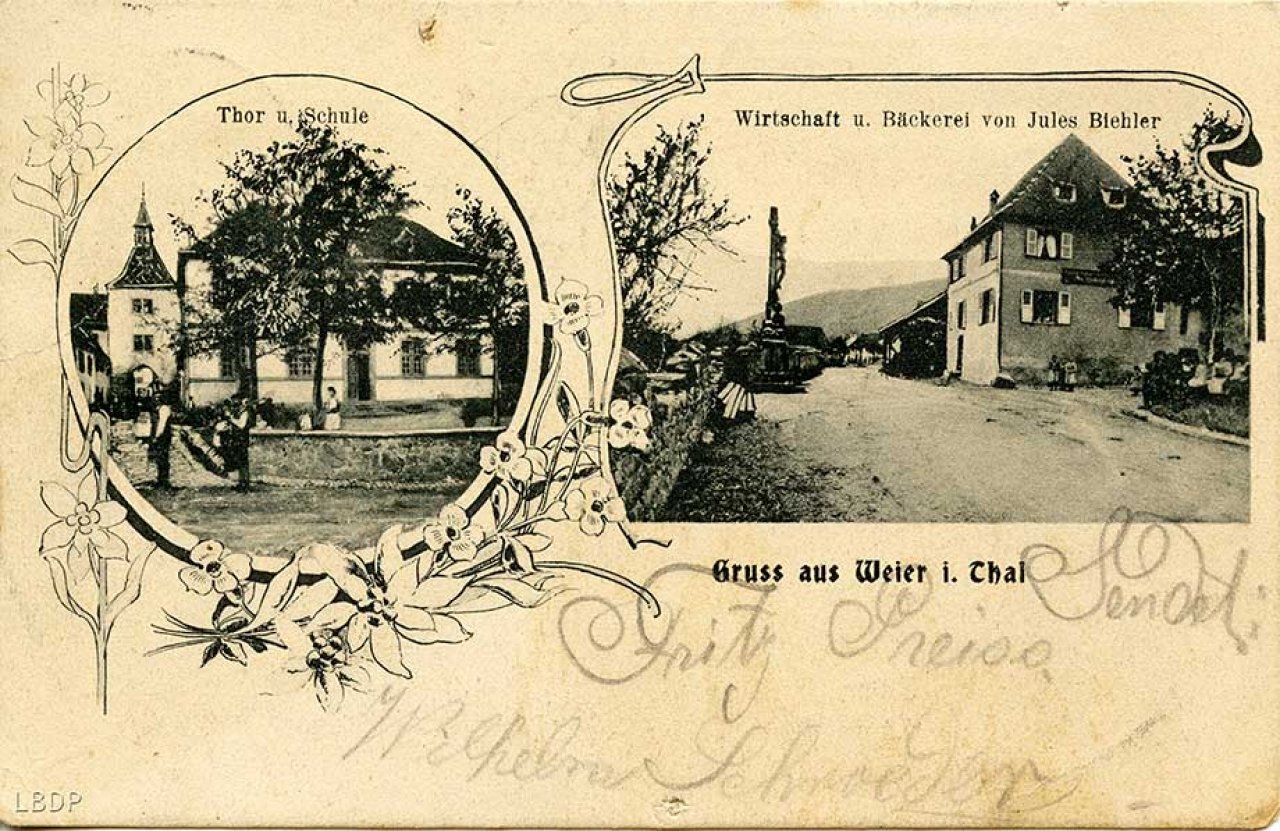 Thor u. Schule
Wirtschaft u. Bäckerei von Jules Biehler
Gruss aus Weier i. Thal
Sendet:
Fritz
Wilhelm Schroeder
LBDP